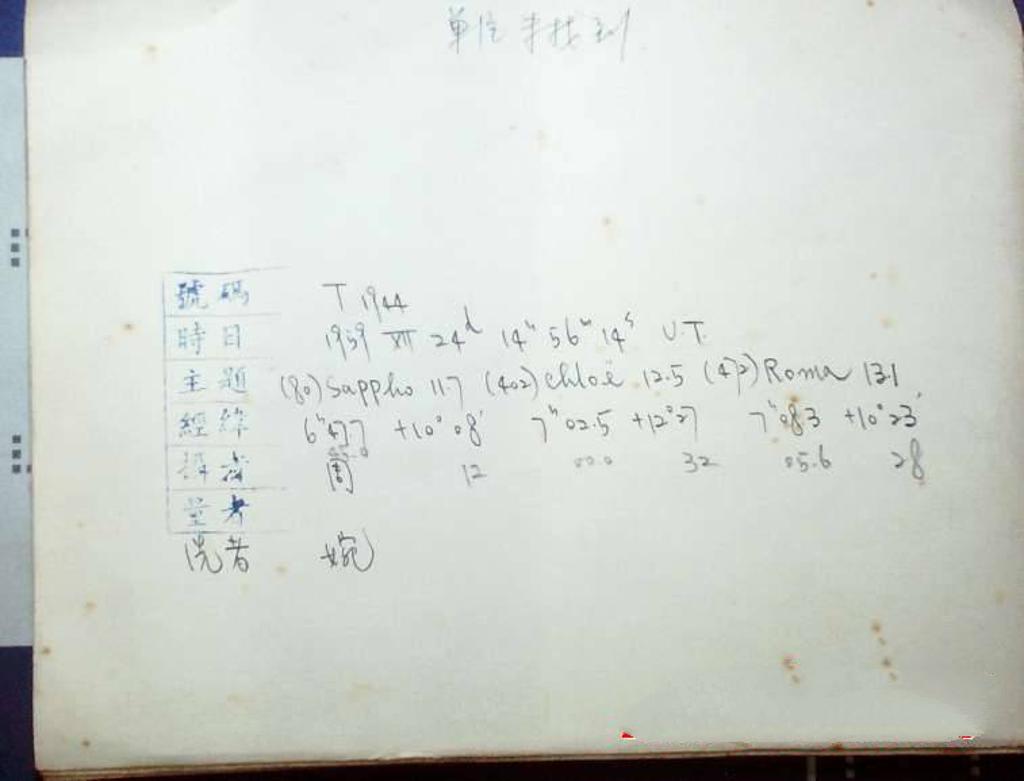 单位未找到
號碼 T 1944
時日 1959 XII 24d 14h 56m 14s U.T.
主題 (80) Sappho 11.7 (402) Chloë 12.5 (472) Roma 13.1
經緯 6h47.7 +10°08' 7h02.5 +12°27 7h08.3 +10°23'
攝者 12 00.0 32 05.6 28
量者
洗者 婉